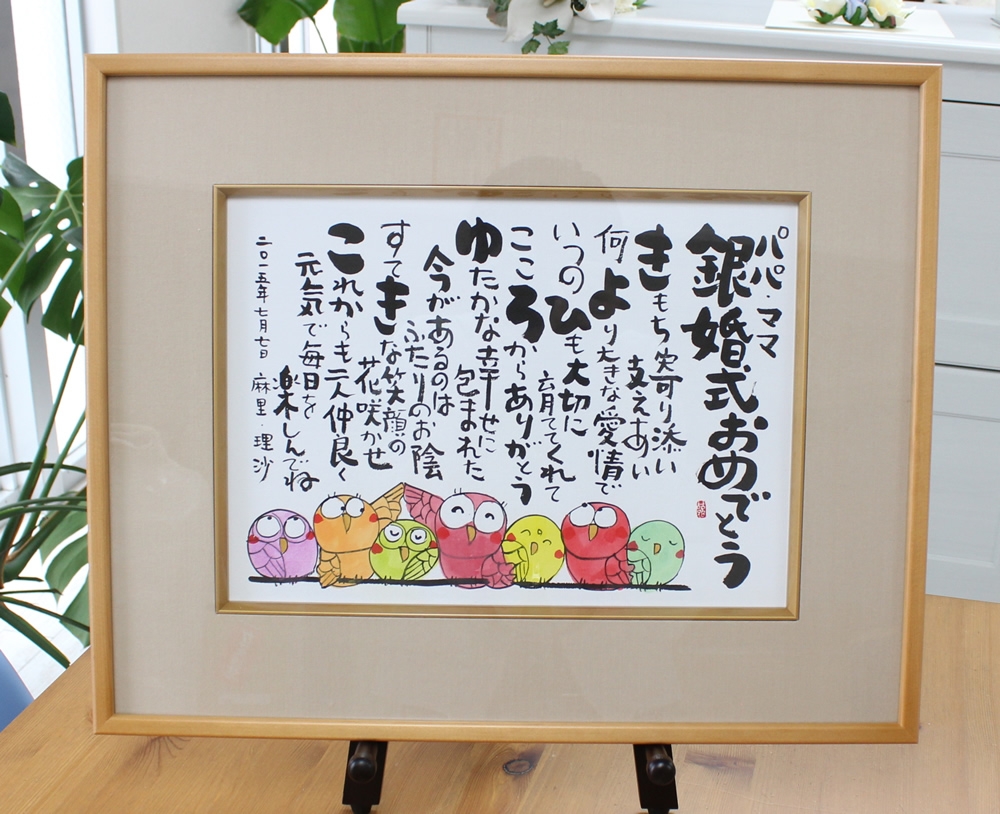 パパ・ママ
銀婚式おめでとう
きもち寄り添い
支えあい
何より大きな愛情で
育ててくれて
いつのひも大切に
こころからありがとう
ゆたかな幸せに
包まれた
今があるのは
ふたりのお陰
すてきな笑顔の
花咲かせ
これからも二人仲良く
元気で毎日を
楽しんでね
二〇一五年七月七日 麻里・理沙